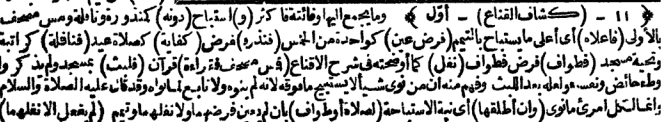 ١١ - (كشاف القناع) - أول ﴾ وما يجمع اليها وفائتة فأكثر (و) استباح (دونه) كمنذورة ونافلة ومس مصحف
بالاولى (فاعلاه) أى أعلى ما يستباح بالتيمم (فرض عين) كواحدة من الخمس (فنذر) فرض (كفاية) كصلاة عيد (فنافلة) كراتبة
وتحية مسجد (فطواف) فرض فطواف (نفل) كما أوضحته فى شرح الاقناع (فمس مصحف فقراءة) قرآن (فلبث) بمسجد ولم يذكروا
وطء حائض ونفساء ولعله بعد اللبث وفهم منه أن من نوى شيأ لا يستبيح ما فوقه لانه لم ينوه ولا تابع لما نواه وقد قال عليه الصلاة والسلام
وانما لكل امرئ ما نوى (وان أطلقها) أى نية الاستباحة (لصلاة أو طواف) بان لم يعين فرضهما ولا نفلهما وتيمم (لم يفعل الا نفلهما)